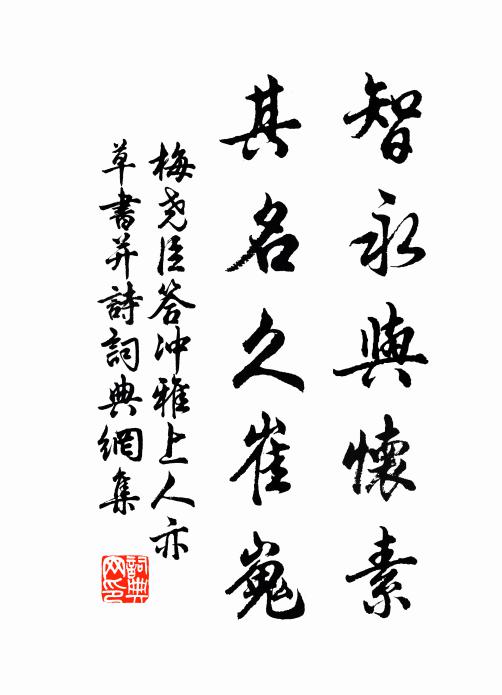 智永與懷素
其名久崔嵬
梅堯臣答冲雅上人亦
草書并詩詞典網集
詞典网印